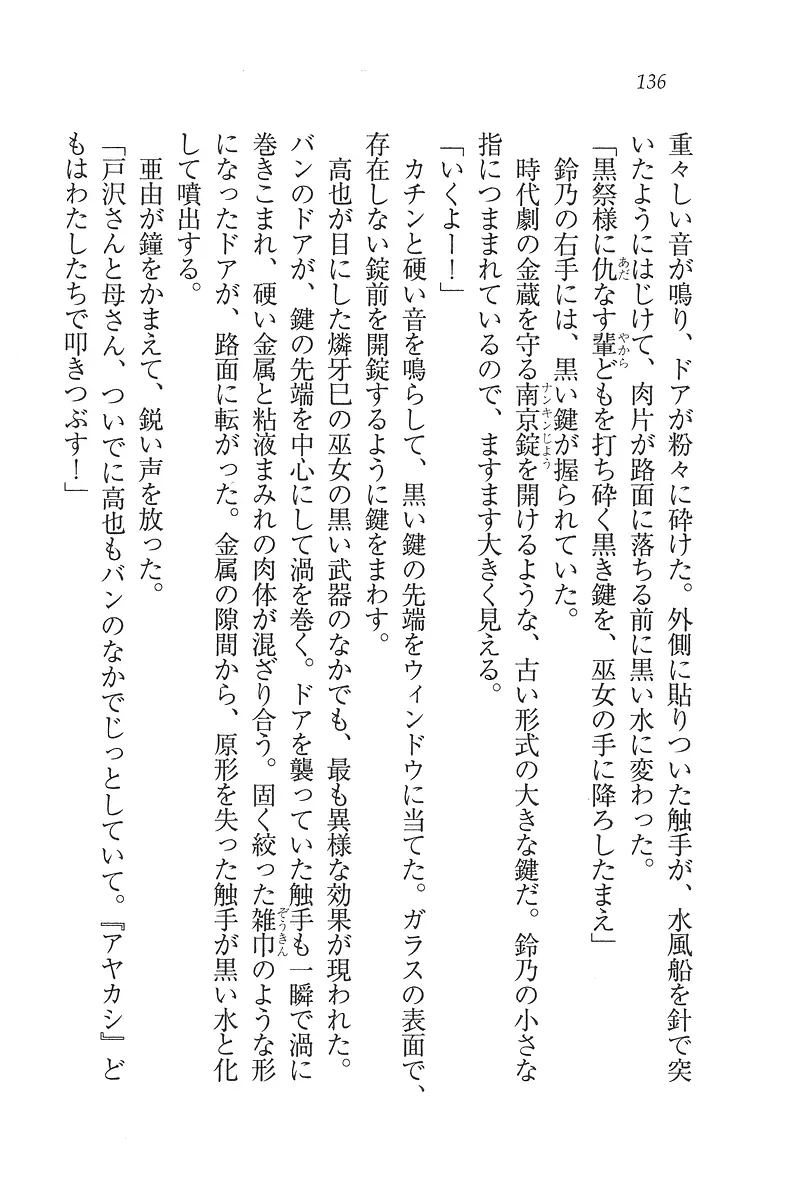 136
重々しい音が鳴り、ドアが粉々に砕けた。外側に貼りついた触手が、水風船を針で突
いたようにはじけて、肉片が路面に落ちる前に黒い水に変わった。
「黒祭様に仇なす輩どもを打ち砕く黒き鍵を、巫女の手に降ろしたまえ」
鈴乃の右手には、黒い鍵が握られていた。
時代劇の金蔵を守る南京錠を開けるような、古い形式の大きな鍵だ。鈴乃の小さな
指につままれているので、ますます大きく見える。
「いくよー！」
カチンと硬い音を鳴らして、黒い鍵の先端をウィンドウに当てた。ガラスの表面で、
存在しない錠前を開錠するように鍵をまわす。
高也が目にした燐牙巳の巫女の黒い武器のなかでも、最も異様な効果が現われた。
バンのドアが、鍵の先端を中心にして渦を巻く。ドアを襲っていた触手も一瞬で渦に
巻きこまれ、硬い金属と粘液まみれの肉体が混ざり合う。固く絞った雑巾のような形
になったドアが、路面に転がった。金属の隙間から、原形を失った触手が黒い水と化
して噴出する。
亜由が鐘をかまえて、鋭い声を放った。
「戸沢さんと母さん、ついでに高也もバンのなかでじっとしていて。『アヤカシ』ど
もはわたしたちで叩きつぶす！」